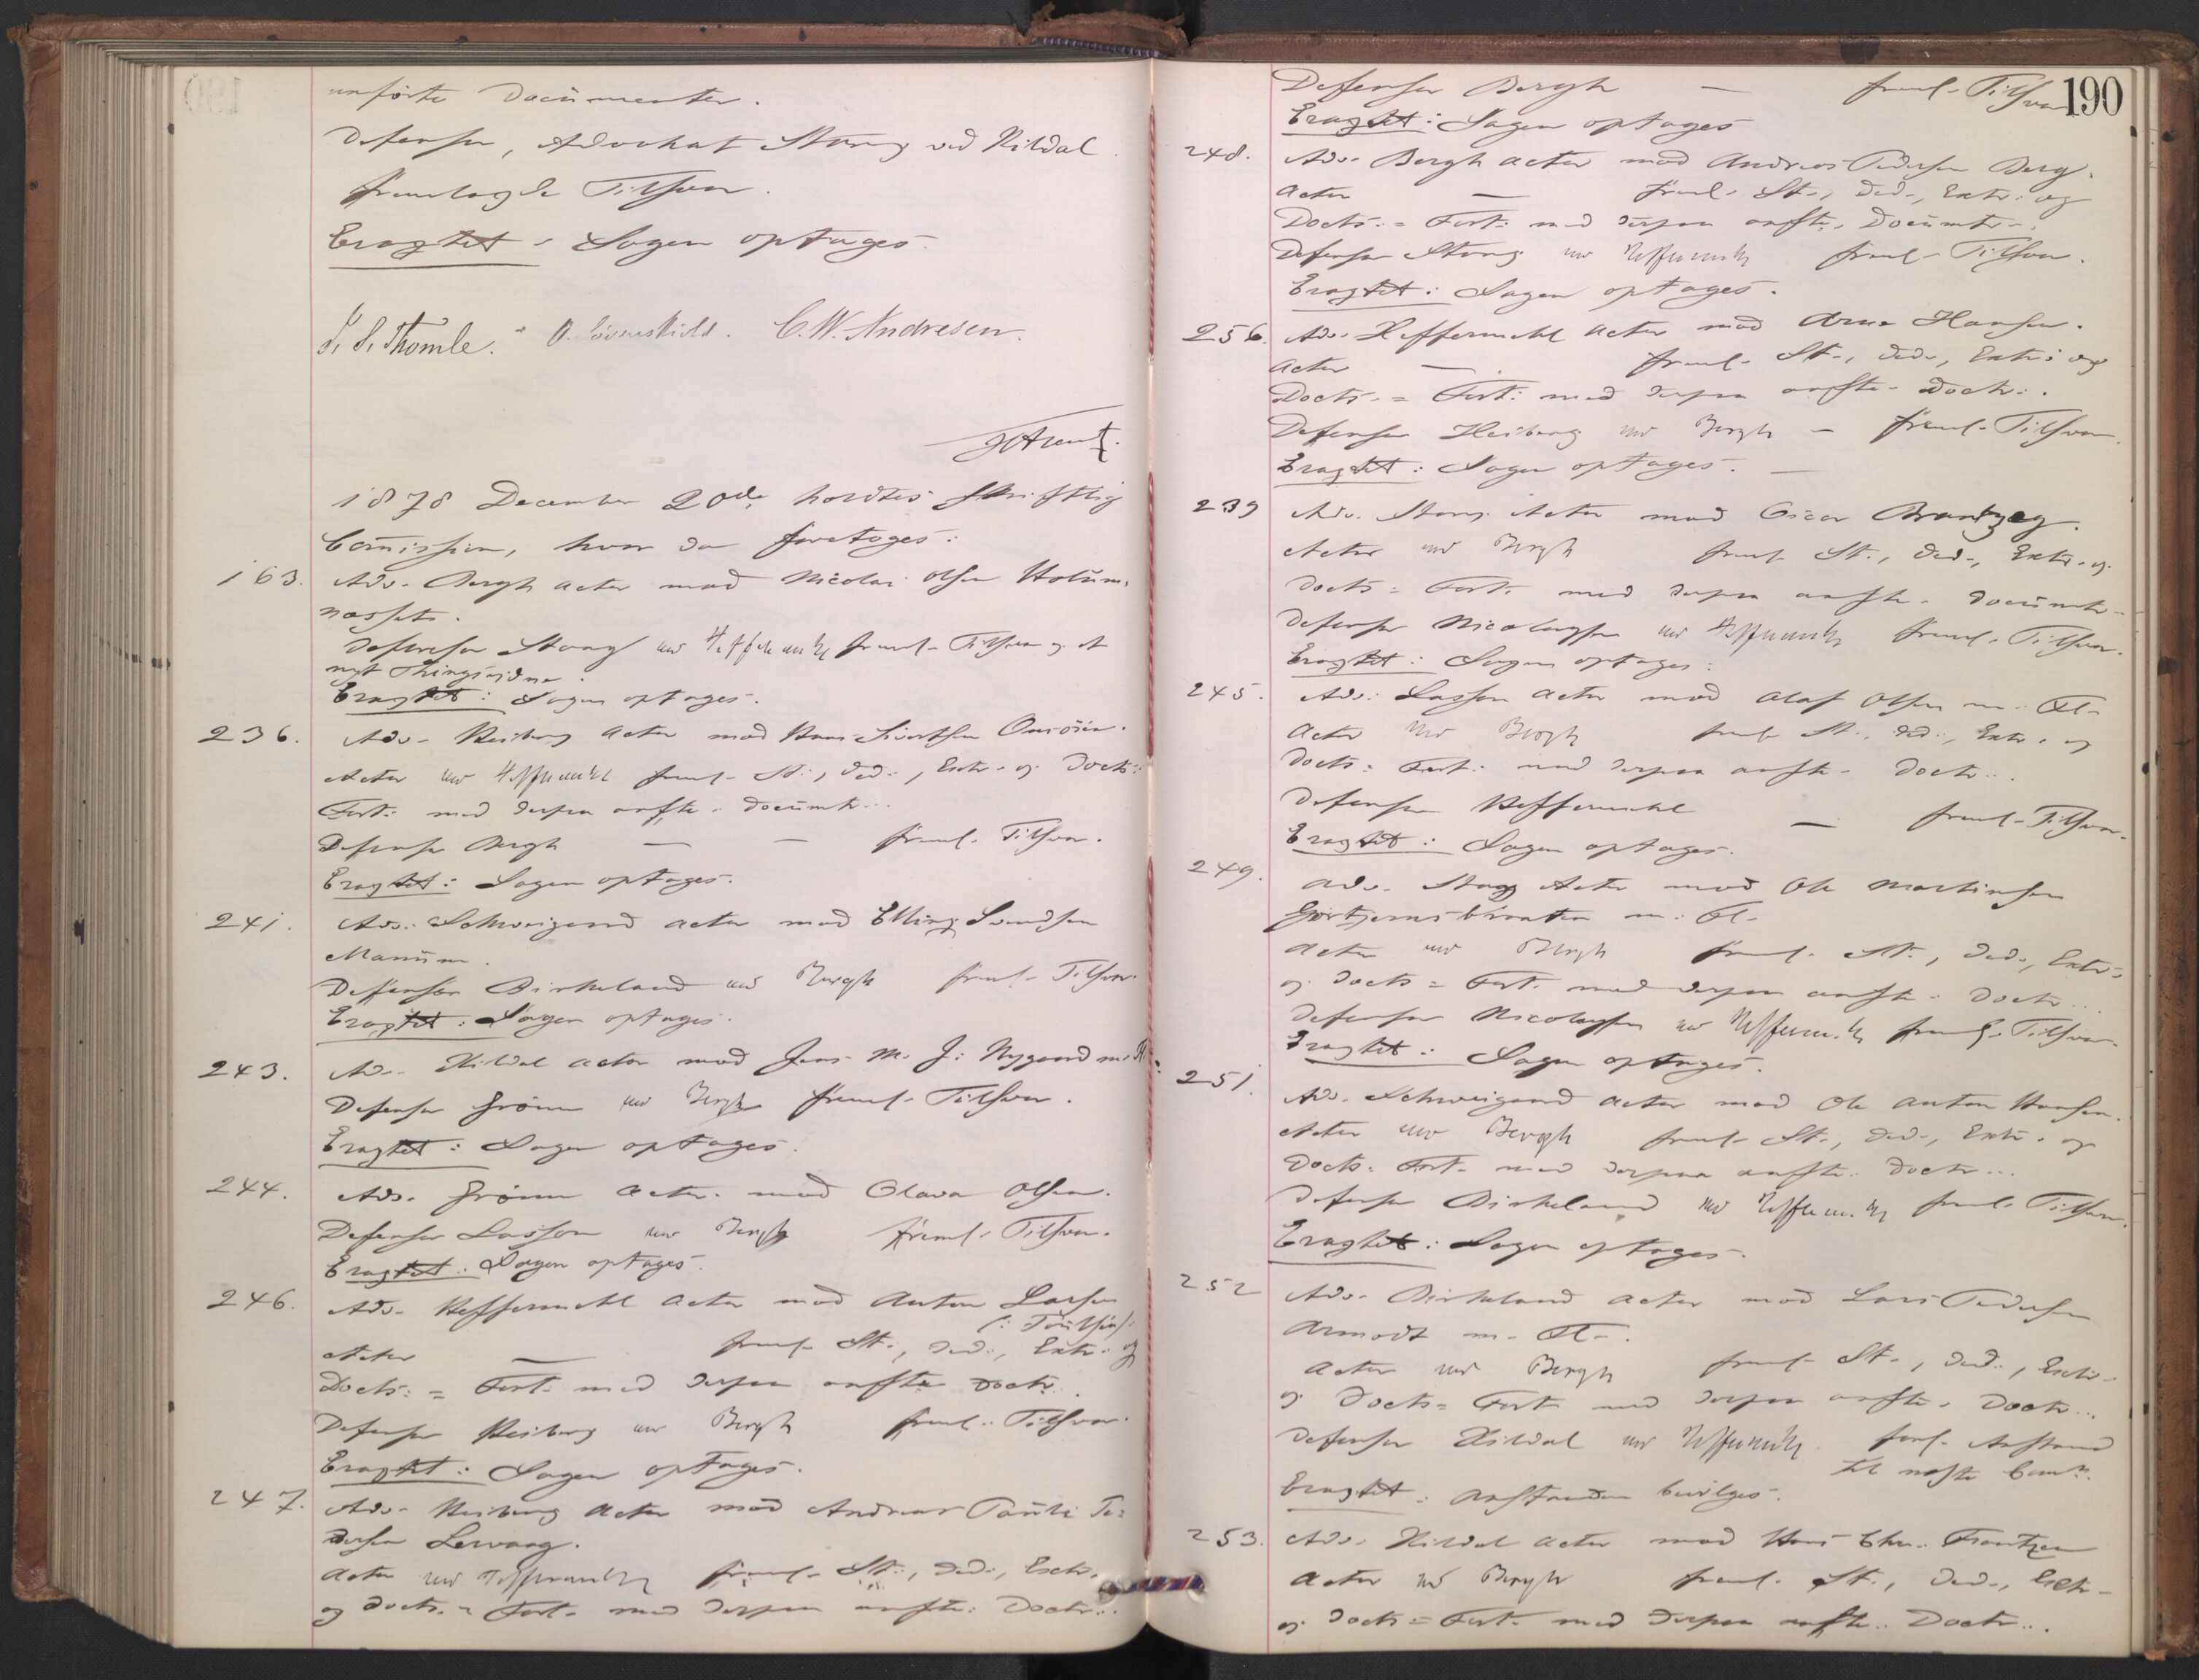 anførte Documenter.
Defensor, Advokat Stang ved Kildal
fremlagde Tilsvar.
Eragtet: Sagen optages.
I. S. Thomle. O. Løvenskiold. C. W. Andresen.
1878 December 20de holdtes skriftlig
Commission, hvor da foretoges:
163. Adv. Bergh Actor mod Nicolai Olsen Holum-
næssets.
Defensor Stang ved Heffermehl freml. Tilsvar og et
nyt Thingsvidne.
Eragtet: Sagen optages.
236. Adv. Heiberg Actor mod Hans Sivertsen
Actor ved Heffermehl freml. St., Ded., Extr. og Docts:
Fort. med derpaa anførte Documtr.
Defensor Bergh — — freml. Tilsvar.
Eragtet: Sagen optages.
241. Adv. Schweigaard Actor mod Elling Svendsen
Manum.
Defensor Birkeland ved Bergh freml. Tilsvar.
Eragtet: Sagen optages.
243. Adv. Kildal Actor mod Jens M. J. Nygaard m. Fl.
Defensor Grønn ved Bergh freml. Tilsvar.
Eragtet: Sagen optages.
244. Adv. Grønn Actor mod Olava Olsen.
Defensor Lasson ved Bergh freml. Tilsvar.
Eragtet: Sagen optages.
246. Adv. Heffermehl Actor mod Anton Larsen
Actor — freml. St., Ded., Extr. og
Docts: = Fort. med derpaa anførte Doctr.
Defensor Heiberg ved Bergh freml. Tilsvar.
Eragtet: Sagen optages.
247. Adv. Heiberg Actor mod Andreas Pauli Pe-
dersen Lervaag.
Actor ved Heffermehl freml. St., Ded., Extr.
og Docts. = Fort. med derpaa anførte Doctr.
190
Defensor Bergh — freml. Tilsvar
Eragtet: Sagen optages
248. Adv. Bergh Actor mod Andreas Pedersen Berg.
Actor — freml. St., Ded., Extr. og
Docts. = Fort. med derpaa anførte Documtr.
Defensor Stang ved Heffermehl freml. Tilsvar.
Eragtet: Sagen optages.
256. Adv. Heffermehl Actor mod Arne Hansen.
Actor — freml. St., Ded., Extr. og
Docts. = Fort. med derpaa anførte Doctr.
Defensor Heiberg ved Bergh — freml. Tilsvar.
Eragtet: Sagen optages. —
239 Adv. Stang Actor mod Oscar Brantzeg.
Actor ved Bergh freml. St., Ded., Extr. og
Docts = Fort. med derpaa anførte Documtr.
Defensor Nicolaysen ved Heffermehl freml. Tilsvar.
Eragtet: Sagen optages.
245. Adv. Lasson Actor mod Olaf Olsen m. Fl.
Actor ved Bergh freml. St., Ded., Extr. og
Docts = Fort. med derpaa anførte Doctr.
Defensor Heffermehl — freml. Tilsvar.
Eragtet: Sagen optages.
249. Adv. Stang Actor mod Ole Martinsen
Gørtjernsbraaten m. Fl.
Actor ved Bergh freml. St., Ded., Extr.
og Docts = Fort. med derpaa anførte Doctr.
Defensor Nicolaysen ved Heffermehl freml. Tilsvar.
Eragtet: Sagen optages.
251. Adv. Schweigaard Actor mod Ole Anton Hansen.
Actor ved Bergh freml. St., Ded., Extr. og
Docts = Fort. med derpaa anførte Doctr.
Defensor Birkeland ved Heffermehl freml. Tilsvar.
Eragtet: Sagen optages.
252 Adv. Birkeland Actor mod Lars Pedersen
Armodt m. Fl.
Actor ved Bergh freml. St., Ded., Extr.
og Docts = Fort. med derpaa anførte Doctr.
Defensor Kildal ved Heffermehl forl. Anstand
til næste Comm.
Eragtet: Anstanden bevilges.
253. Adv. Kildal Actor mod Hans Chr. Frantzen
Actor ved Bergh freml. St., Ded., Extr.
og Docts = Fort. med derpaa anførte Doctr.